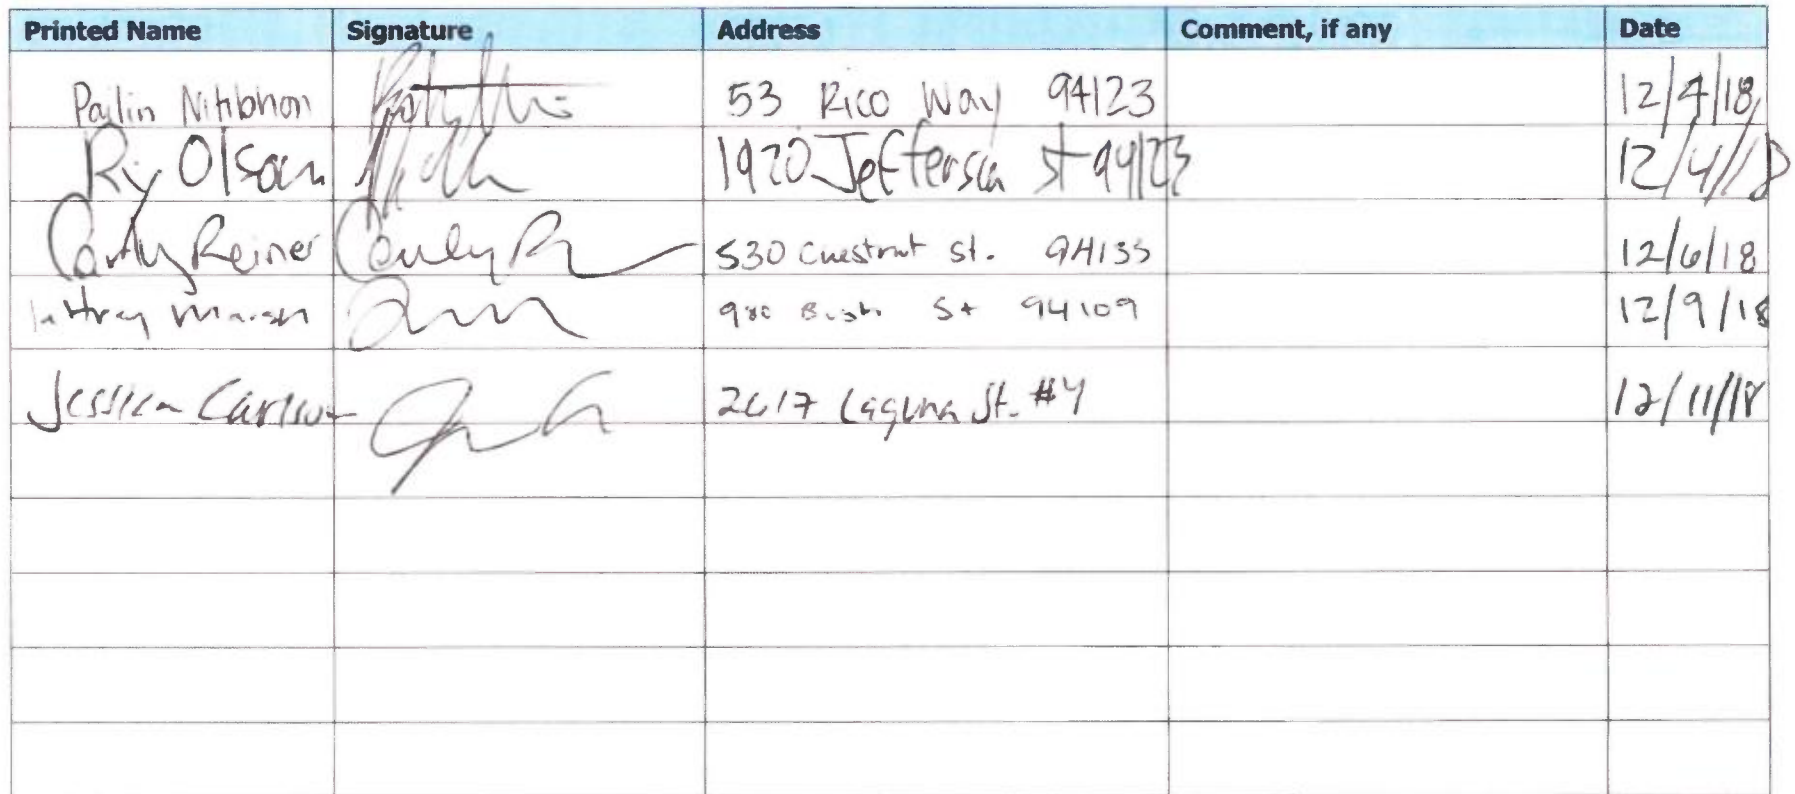 Printed Name Signature Address Comment, if any Date
Pailin Nitibhon 53 Rico Way 94123 12/4/18
Olson 1920 Jefferson St 94123 12/4/18
Carly Reiner Carly R 530 Chestnut St. 94133 12/6/18
980 Bush St 94109 12/9/18
Jessica Carlson 2617 Laguna St. #4 12/11/18